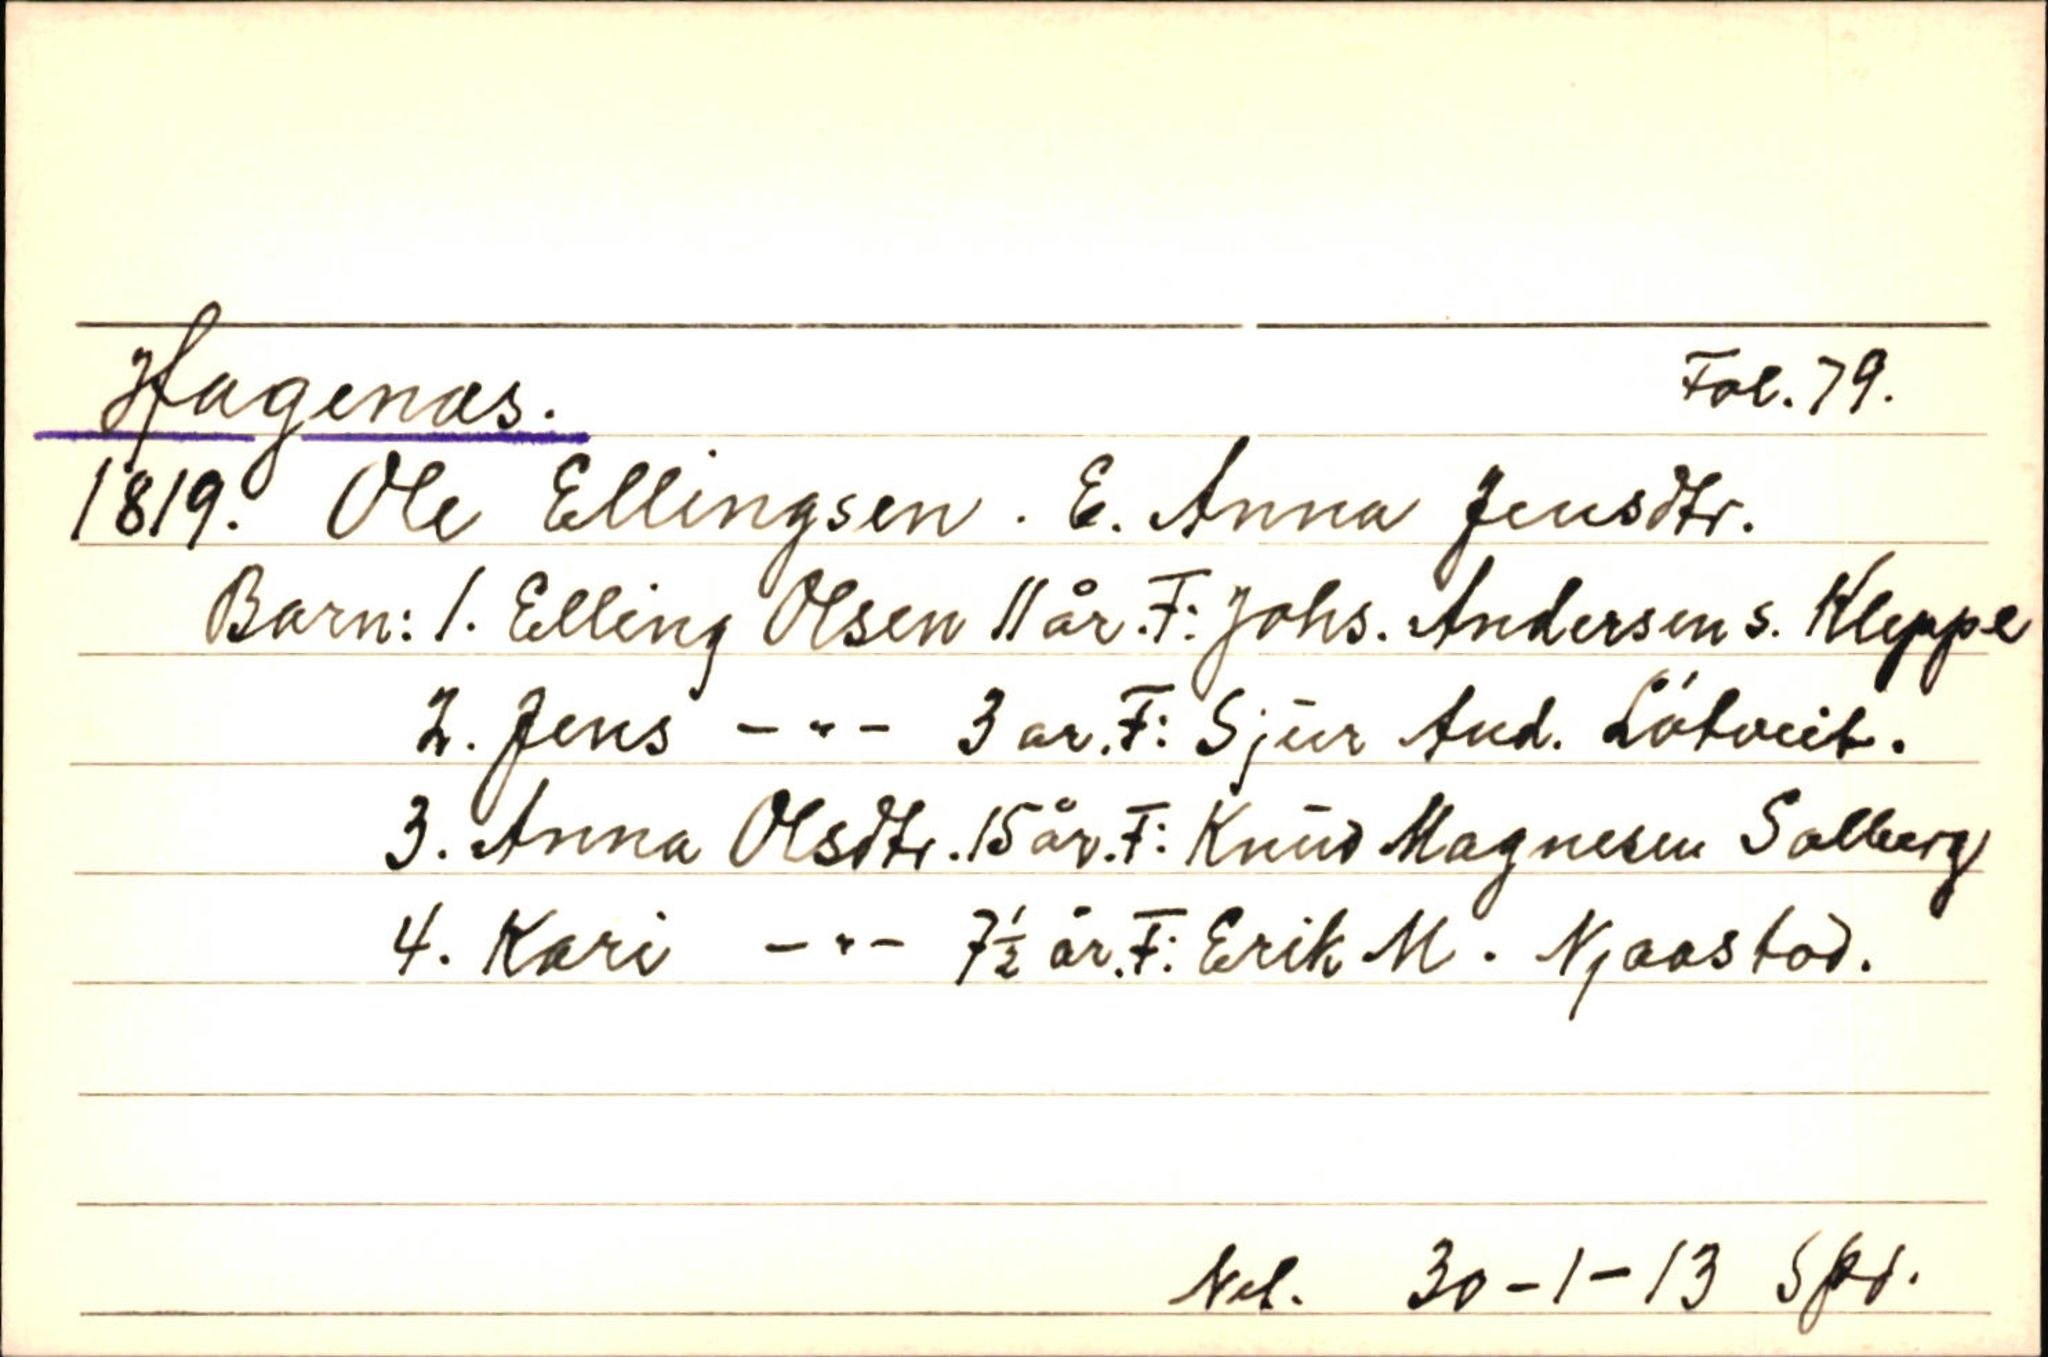 Hagenæs. Fol. 79.
1819. Ole Ellingsen. E. Anna Jensdtr.
Barn: 1. Elling Olsen 11 år. F: Johs. Andersen s. Kleppe
2. Jens -"- 3 ar. F: Sjur And. Lótveit.
3. Anna Olsdtr. 15 år. F: Knud Magnesen Solberg
4. Kari -"- 7½ år. F: Erik M. Njaastad.
Net. 30-1-13 Spd.